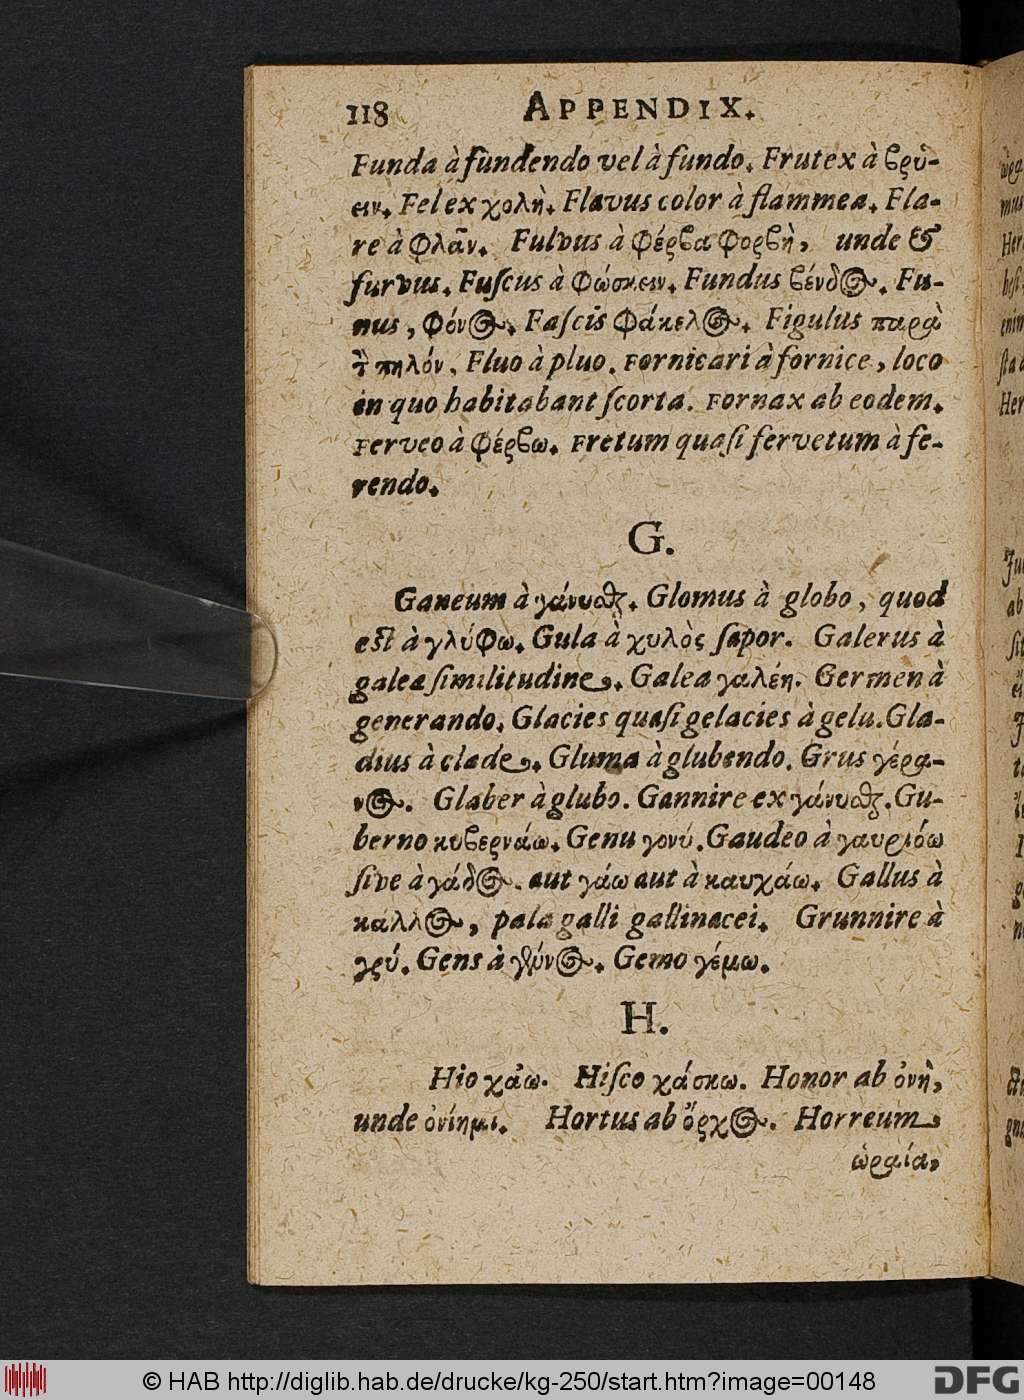 118 APPENDIX.
Funda à fundendo vel à fundo. Frutex à ϐρύ-
ειν. Fel ex χολὴ. Flavus color à flammea. Fla-
re à φλᾶν. Fulvus à φέρϐα φορϐὴ, unde &
furvus. Fuſcus à φώσκειν. Fundus ϐένδος. Fu-
nus, φόνος. Faſcis φάκελος. Figulus παρὰ
τὸ πηλόν. Fluo à pluo. Fornicari à fornice, loco
in quo habitabant ſcorta. Fornax ab eodem.
Ferveo à φέρϐω. Fretum quaſi fervetum à fe-
rendo.
G.
Ganeum à γάνυσθαι. Glomus à globo, quod
est à γλύφω. Gula à χυλὸς ſapor. Galerus à
galea ſimilitudine. Galea γαλέη. Germen à
generando. Glacies quaſi gelacies à gelu. Gla-
dius à clade. Gluma à glubendo. Grus γέρα-
νος. Glaber à glubo. Gannire ex γάνυσθαι. Gu-
berno κυϐερνάω. Genu γονύ. Gaudeo à γαυριόω
ſive à γάδος. aut γάω aut à καυχάω. Gallus à
κάλλος, pala galli gallinacei. Grunnire à
γρύ. Gens à γύνος. Gemo γέμω.
H.
Hio χάω. Hiſco χάσκω. Honor ab ὀνὴ,
unde ὀνίημι. Hortus ab ὄρχος. Horreum
ὡραία,
© HAB http://diglib.hab.de/drucke/kg-250/start.htm?image=00148
DFG